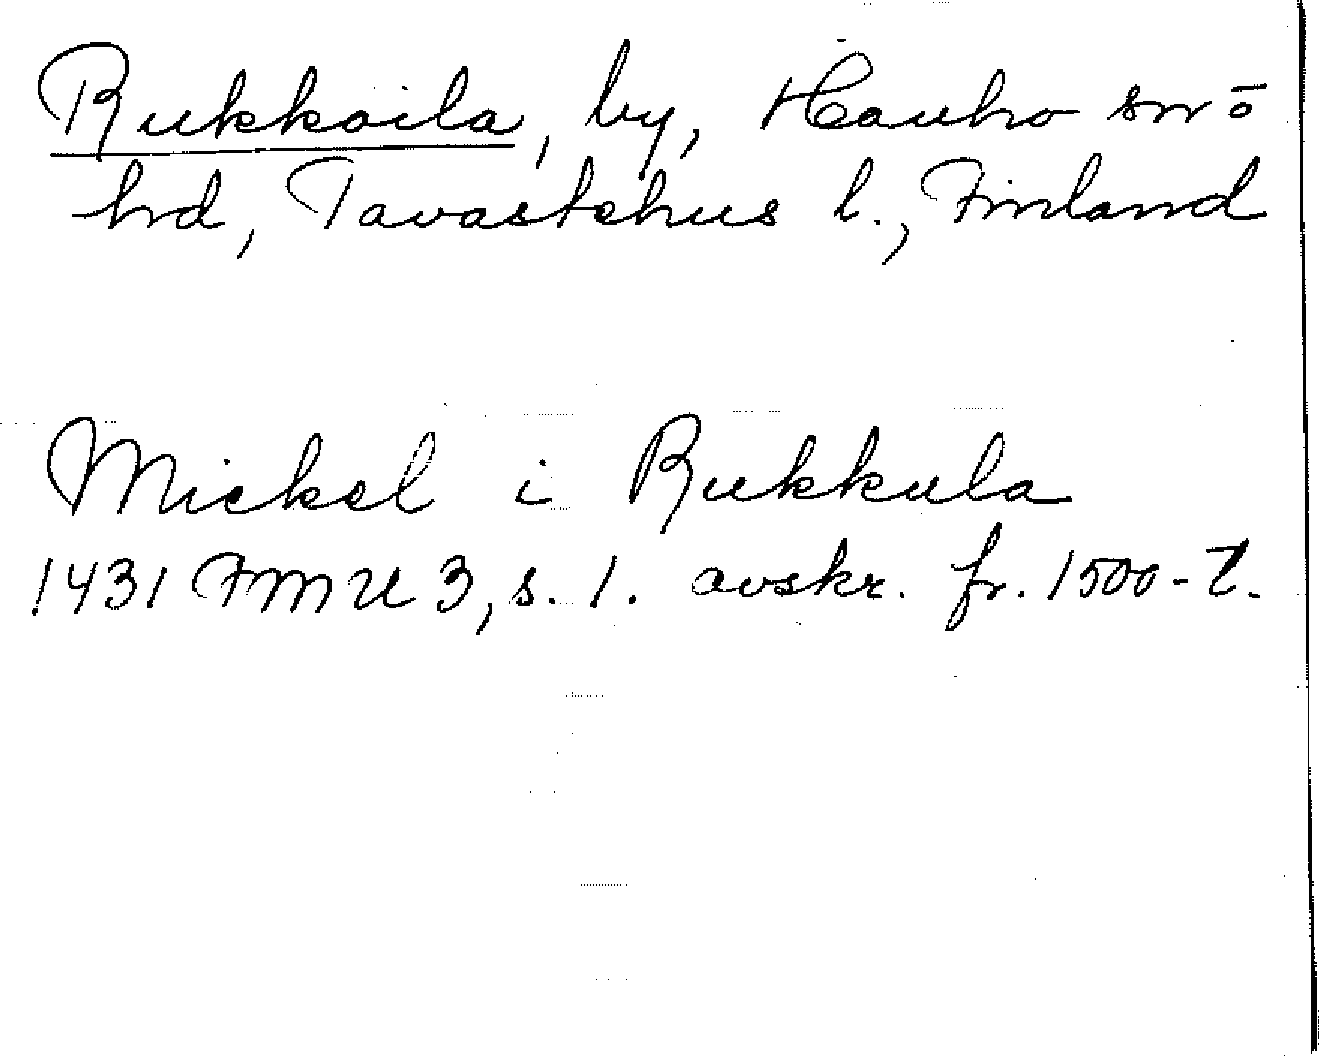 Rukkoila, by, Hauho sn o
hd, Tavastehus l., Finland
Mickel i Rukkula
1431 FMU 3, s. 1. avskr. fr. 1500-t.